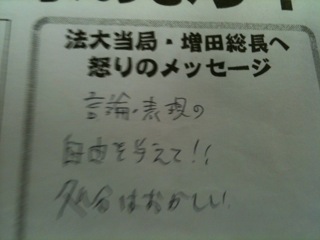 法大当局・増田総長へ
怒りのメッセージ
言論・表現の
自由を与えて!!
処分はおかしい